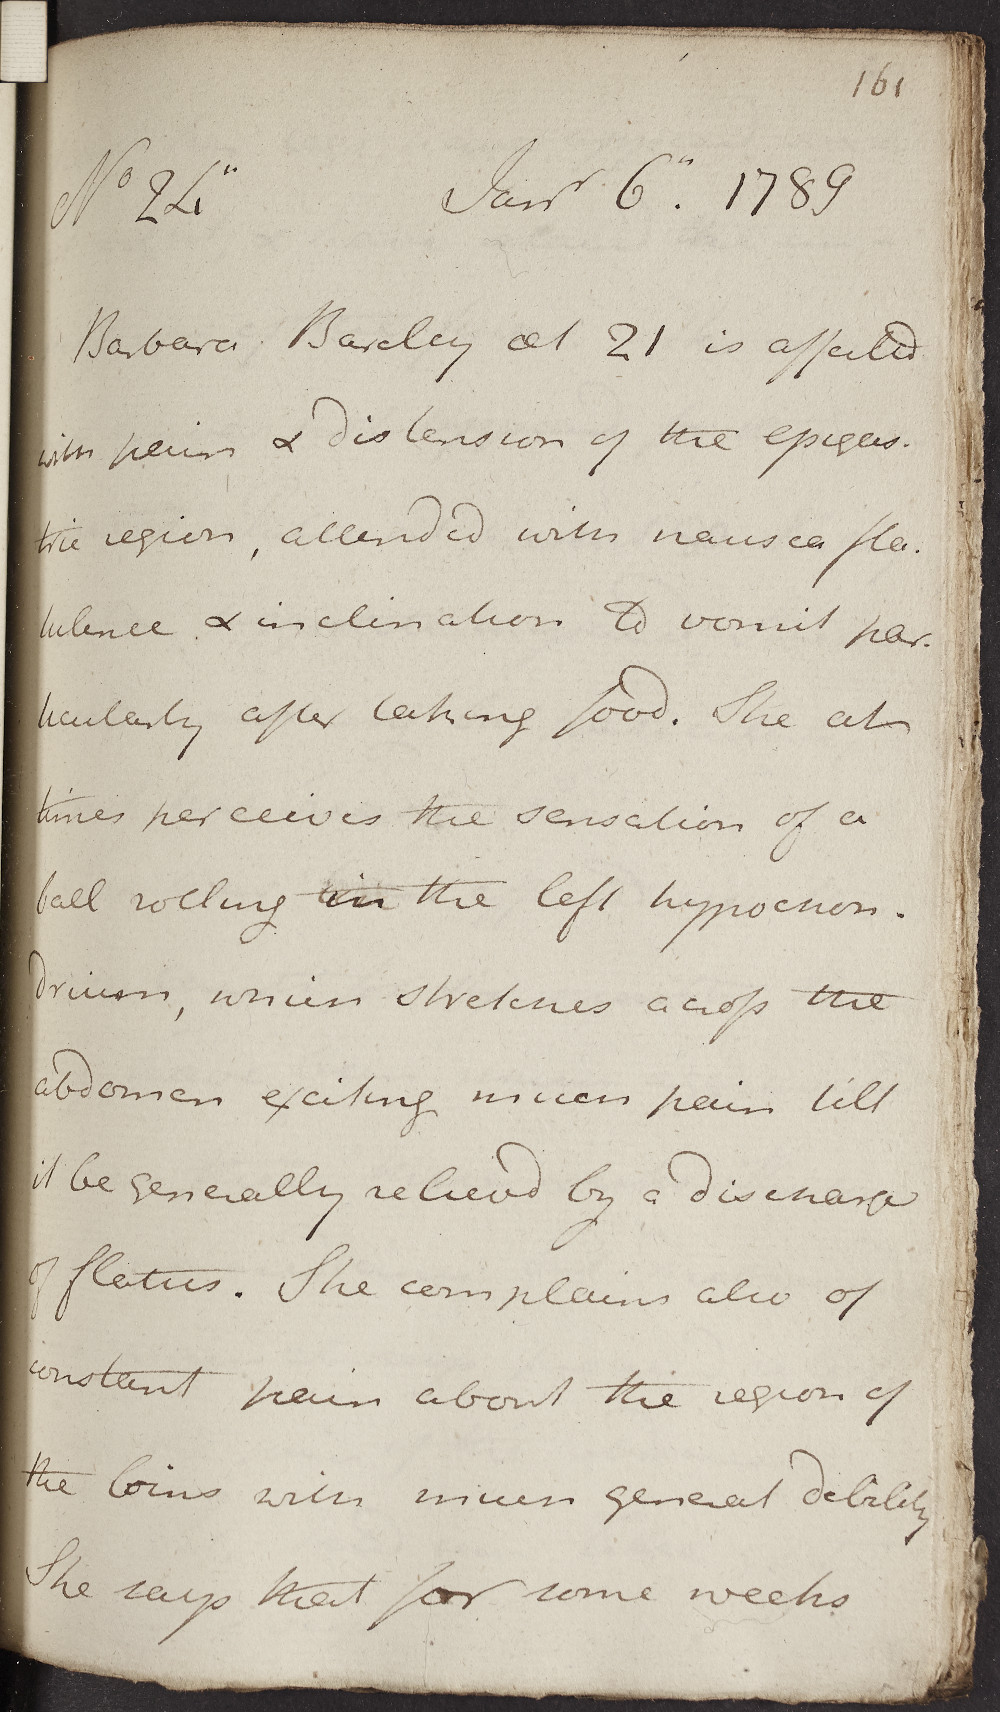 161
No 24" Janr 6". 1789
Barbara Barcley æt 21 is affected
with pain & distension of the epigas.
tric region, attended with nausea fla.
tulence & inclination to vomit par.
ticularly after taking food. She at
times perceives the sensation of a
ball rolling in the left hypochon.
drium, which stretches across the
abdomen exciting much pain till
it be generally relievd by a discharge
of flatus. She complains also of
constant pain about the region of
the loins with much general debility
She says that for some weeks